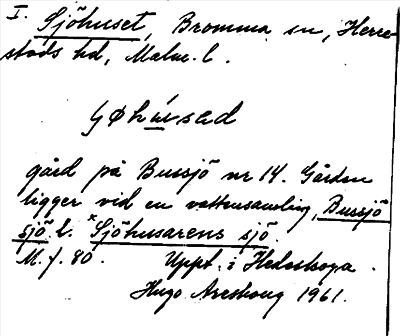 I. Sjöhuset, Bromma sn, Herre-
stads hd, Malm. l.
gård på Bussjö nr 14. Gården
ligger vid en vattensamling, Bussjö
sjö l. *Sjöhusarens sjö.
M. f. 80. Uppt. i Hedeskoga.
Hugo Areskoug 1961.